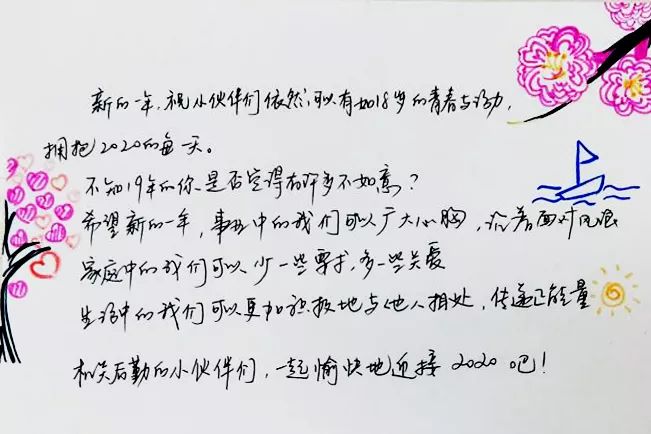 新的一年，祝小伙伴们依然可以有如18岁的青春与活力，
拥抱2020的每一天。
不知19年的你是否觉得有许多不如意？
希望新的一年，事业中的我们可以广大心胸，沉着面对风浪
家庭中的我们可以少一些要求，多一些关爱
生活中的我们可以更加积极地与他人相处，传递正能量
后勤的小伙伴们，一起愉快地迎接2020吧！